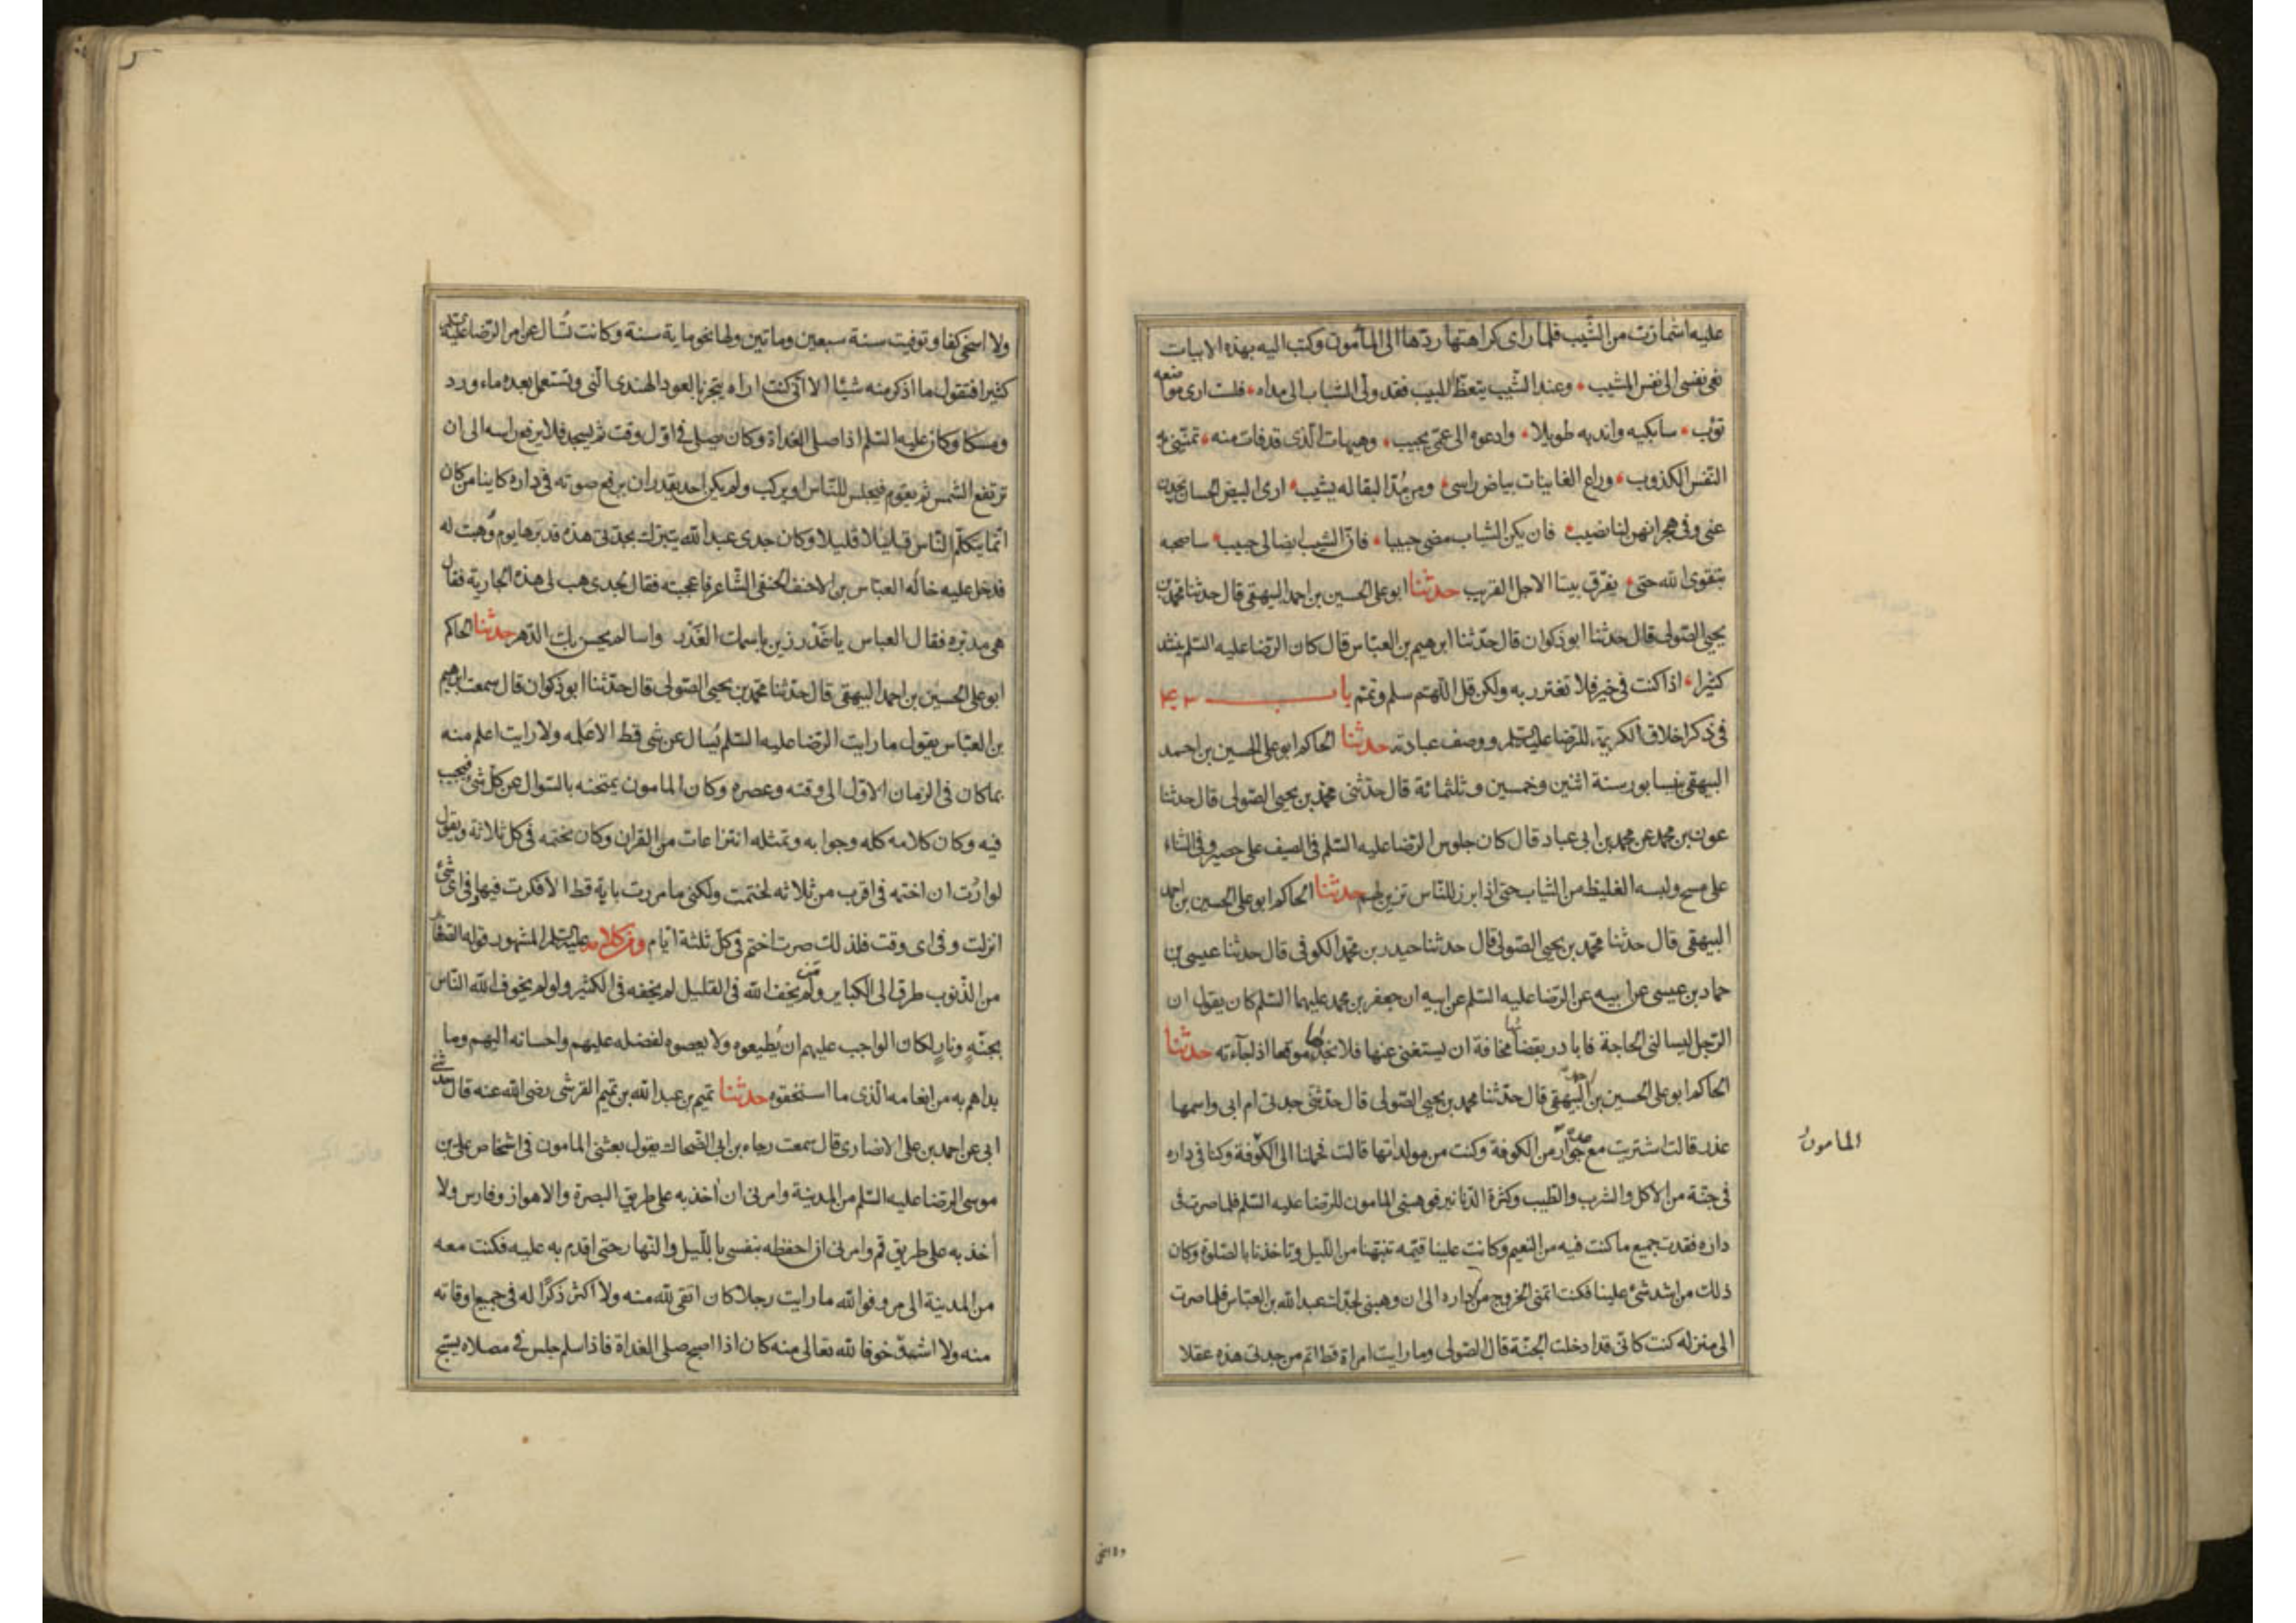 عليه اشمازت من الشيب فلما راى كراهتها ردها الى المأمون وكتب اليه بهذه الابيات
نعى نفسى الى نفس المشيب وعند الشيب يتعظ اللبيب فقد ولى الشباب الى مداه فلست ارى مواضعه
تؤب سابكيه واندبه طويلا وادعوه الى عسى يجيب وهيهات الذى قد فات منه تمنينى به
النفس الكذوب وراع الغانيات بياض راسى ومن مد البقا له يشيب ارى البيض الحسان يحدن
عنى وفى هجرانهن لنا نصيب فان يكن الشباب مضى حبيبا فان الشيب ايضا لى حبيب ساصحبه
بتقوى الله حتى يفرق بيننا الاجل القريب حدثنا ابو على الحسين بن احمد البيهقى قال حدثنا محمد بن
يحيى الصولى قال حدثنا ابو ذكوان قال حدثنا ابرهيم بن العباس قال كان الرضا عليه السلم ينشد
كثيرا اذا كنت فى خير فلا تغترر به ولكن قل اللهم سلم وتمم باب
فى ذكر اخلاق الكريمة للرضا عليه السلم ووصف عبادته حدثنا الحاكم ابو على الحسين بن احمد
البيهقى بنيسابور سنة اثنين وخمسين وثلثمائة قال حدثنى محمد بن يحيى الصولى قال حدثنا
عون بن محمد عن محمد بن ابى عباد قال كان جلوس الرضا عليه السلم فى الصيف على حصير وفى الشتاء
على مسح ولبسه الغليظ من الثياب حتى اذا برز للناس تزين لهم حدثنا الحاكم ابو على الحسين بن احمد
البيهقى قال حدثنا محمد بن يحيى الصولى قال حدثنا حيدر بن محمد الكوفى قال حدثنا عيسى بن
حماد بن عيسى عن ابيه عن الرضا عليه السلم عن ابيه ان جعفر بن محمد عليهما السلم كان يقول ان
الرجل ليسالنى الحاجة فابادر بقضائها مخافة ان يستغنى عنها فلا تجد لها موقعا اذا جاءته حدثنا
الحاكم ابو على الحسين بن احمد البيهقى قال حدثنا محمد بن يحيى الصولى قال حدثتنى جدتى ام ابى واسمها
عذر قالت اشتريت مع عدة جوار من الكوفة وكنت من مولداتها قالت فحملنا الى الكوفة وكنا فى داره
المامون
فى جنة من الاكل والشرب والطيب وكثرة الدنانير فوهبنى المامون للرضا عليه السلم فلما صرت فى
داره فقدت جميع ما كنت فيه من النعيم وكانت علينا قيمة تنبهنا من الليل وتاخذنا بالصلوة وكان
ذلك من اشد شئ علينا فكنت اتمنى الخروج من داره الى ان وهبنى لجدك عبد الله بن العباس فلما صرت
الى منزله كنت كانى قد ادخلت الجنة قال الصولى وما رايت امراة قط اتم من جدتى هذه عقلا
ولا اسخى كفا وتوفيت سنة سبعين وماتين ولها نحو ماية سنة وكانت تُسال عن امر الرضا عليه السلم
كثيرا فتقول ما اذكر منه شيئا الا انى كنت اراه يتبخر بالعود الهندى النى ويستعمل بعده ماء ورد
ومسكا وكان عليه السلم اذا صلى الغداة وكان يصلى فى اول وقت ثم يسجد فلا يرفع راسه الى ان
ترتفع الشمس ثم يقوم فيجلس للناس او يركب ولم يكن احد يقدر ان يرفع صوته فى داره كاينا من كان
انما يتكلم الناس قليلا قليلا وكان جدى عبد الله يتبرك بجدتى هذه قد برها يوم وُهبت له
فدخل عليه خاله العباس بن الاحنف الحنفى الشاعر فاعجبته فقال لجدى هب لى هذه الجارية فقال
هى مدبرة فقال العباس يا غَدْر زين باسمك الغدر واسا لم يحسن بك الدهر حدثنا الحاكم
ابو على الحسين بن احمد البيهقى قال حدثنا محمد بن يحيى الصولى قال حدثنا ابو ذكوان قال سمعت ابرهيم
بن العباس يقول ما رايت الرضا عليه السلم يُسال عن شى قط الا علمه ولا رايت اعلم منه
بما كان فى الزمان الاول الى وقته وعصره وكان المامون يمتحنه بالسؤال عن كل شئ فيجيب
فيه وكان كلامه كله وجوابه وتمثله انتزاعات من القران وكان يختمه فى كل ثلاثة ويقول
لو اردت ان اختمه فى اقرب من ثلاثة لختمت ولكنى ما مررت باية قط الا فكرت فيها وفى اى شئ
انزلت وفى اى وقت فلذلك صرت اختم فى كل ثلثة ايام ومن كلامه عليه السلم المشهور قوله الصغاير
من الذنوب طرق الى الكباير ومن لم يخف الله فى القليل لم يخفه فى الكثير ولو لم يخوف الله الناس
بجنةٍ ونارٍ لكان الواجب عليهم ان يُطيعوه ولا يعصوه لفضله عليهم واحسانه اليهم وما
بداهم به من انعامه الذى ما استحقوه حدثنا تميم بن عبد الله بن تميم القرشى رضى الله عنه قال حدثنى
ابى عن احمد بن على الانصارى قال سمعت رجاء بن ابى الضحاك يقول بعثنى المامون فى اشخاص على بن
موسى الرضا عليه السلم من المدينة وامرنى ان اخذ به على طريق البصرة والاهواز وفارس ولا
أخذ به على طريق قم وامرنى ان احفظه بنفسى بالليل والنهار حتى اقدم به عليه فكنت معه
من المدينة الى مرو فوالله ما رايت رجلا كان اتقى لله منه ولا اكثر ذكرًا له فى جميع اوقاته
منه ولا اشد خوفا لله تعالى منه كان اذا اصبح صلى الغداة فاذا سلم جلس فى مصلاه يسبح